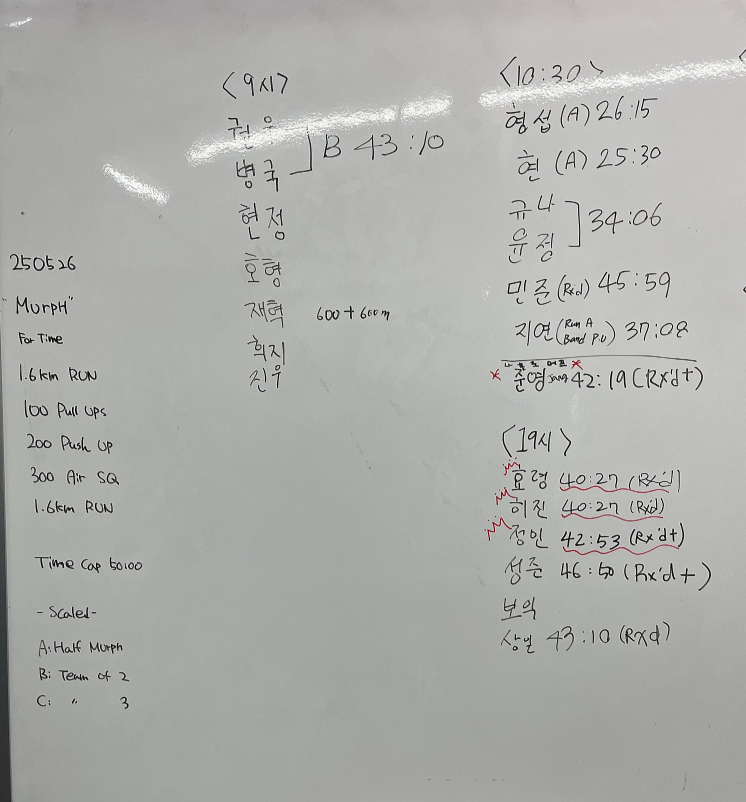 250526
"MURPH"
For Time
1.6km RUN
100 Pull Ups
200 Push Up
300 Air SQ
1.6km RUN
Time Cap 50:00
-Scaled-
A: Half Murph
B: Team of 2
C: 〃 3
<9시>
권우
병국
B 43:10
현정
호형
재혁 600+600m
희지
진우
<10:30>
형섭 (A) 26:15
현 (A) 25:30
규나
윤정
34:06
민준 (Rx'd) 45:59
지연 (Run A
Band P.U) 37:08
준영 42:19 (Rx'd+)
<19시>
효령 40:27 (Rx'd)
히진 40:27 (Rx'd)
정인 42:53 (Rx'd+)
성준 46:50 (Rx'd+)
보익
상일 43:10 (RXd)